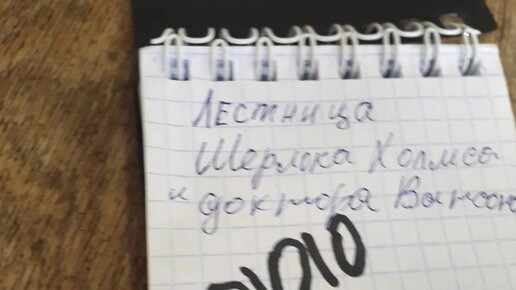 Лестница
Шерлока Холмса
и доктора